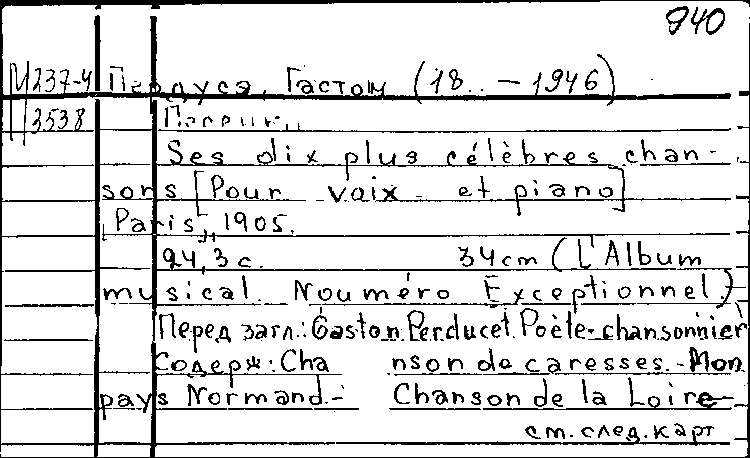 940
М237-4 Пердуса, Гастом (18.. – 1946)
П3538
Ses dix plus célèbres chan-
sons [Pour voix et piano]
Paris, 1905.
24,3 с. 34cm (L'Album
musical Nouméro Exceptionnel)
Перед загл.: Gaston Perducet. Poète-chansonnier
Содерж: Cha nson de caresses. - Mon
pays Normand. - Chanson de la Loire-
см. след. карт